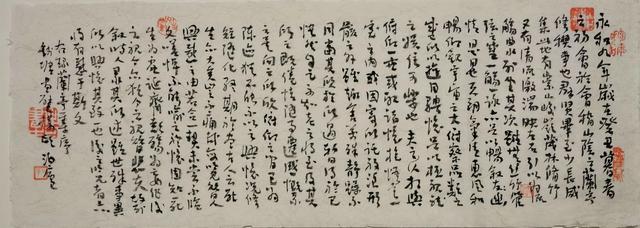 永和九年歲在癸丑暮春
之初會於會稽山陰之蘭亭
脩禊事也群賢畢至少長咸
集此地有崇山峻嶺茂林脩竹
又有清流激湍映帶左右引以為流
觴曲水列坐其次雖無絲竹管
弦之盛一觴一詠亦足以暢敘幽
情是日也天朗氣清惠風和
暢仰觀宇宙之大俯察品類之
盛所以遊目騁懷足以極視聽
之娛信可樂也夫人之相與
俯仰一世或取諸懷抱悟言一
室之內或因寄所託放浪形
骸之外雖趣舍萬殊靜躁不
同當其欣於所遇暫得於己
快然自足不知老之將至及其
所之既倦情隨事遷感慨係
之矣向之所欣俛仰之間已為
陳迹猶不能不以之興懷況脩
短隨化終期於盡古人云死
生亦大矣豈不痛哉每覽昔人
興感之由若合一契未嘗不臨
文嗟悼不能喻之於懷固知死
生為虛誕齊彭殤為妄作後
之視今亦猶今之視昔悲夫故列
敘時人錄其所述雖世殊事異
所以興懷其致一也後之覽者亦
將有感於斯文
右錄蘭亭集序